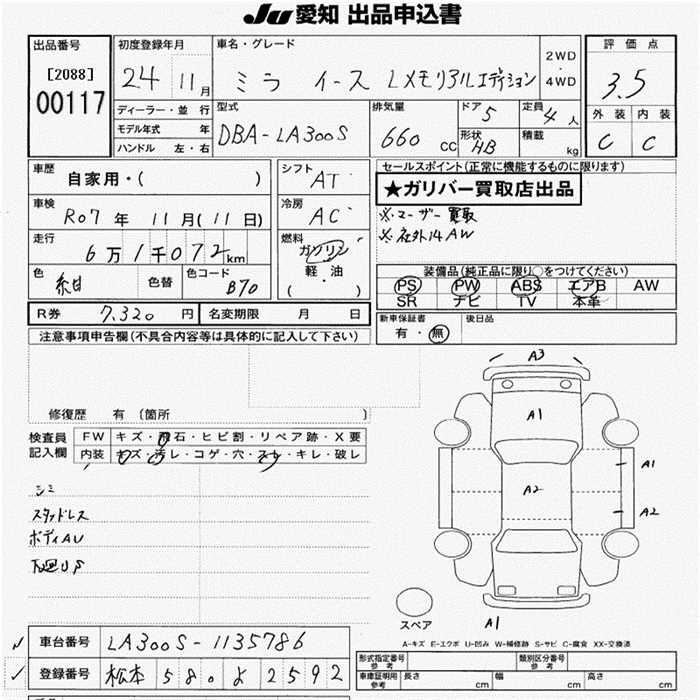 Ju 愛知 出品申込書
出品番号
[2088]
00117
初度登録年月
24 11月
車名・グレード
ミラ イース Lメモリアルエディション
2WD
・
4WD
評価点
3.5
外装 内装
C C
ディーラー・並行
モデル年式 年
ハンドル 左・右
型式
DBA-LA300S
排気量
660 CC
ドア 5
形状 HB
定員 4人
積載 kg
車歴
自家用・( )
シフト AT
セールスポイント(正常に機能するものに限ります)
★ガリバー買取店出品
※ユーザー買取
※社外14AW
車検
R07年 11月(11日)
冷房 AC
走行
6万1千072km
燃料
ガソリン
軽・油
( ・ )
色 紺
色替
色コード B70
装備品(純正品に限り○をつけてください)
PS PW ABS エアB AW
SR ナビ TV 本革
R券 7,320円
名変期限 月 日
新車保証書 有・無
後日品
注意事項申告欄(不具合内容等は具体的に記入して下さい)
修復歴 有 〔箇所 〕
検査員記入欄
FW キズ・飛石・ヒビ割・リペア跡・X要
内装 キズ・汚レ・コゲ・穴・スレ・キレ・破レ
シミ
スタッドレス
ボディAU
下廻りS
A3
A1
A2
A1
A2
A1
スペア
A-キズ E-エクボ U-凹み W-補修跡 S-サビ C-腐食 XX-交換済
車台番号 LA300S-1135786
登録番号 松本 580 よ 2592
型式指定番号参考
類別区分番号参考
車庫証明用参考 長さ cm 幅 cm 高さ cm